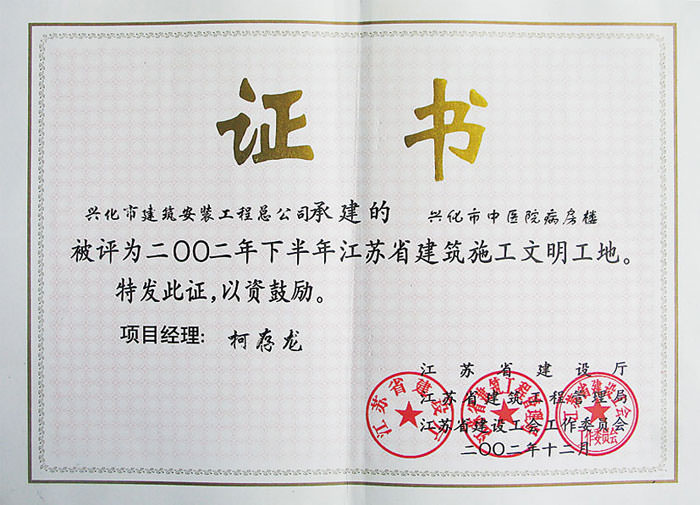 证书
兴化市建筑安装工程总公司承建的 兴化市中医院病房楼
被评为二〇〇二年下半年江苏省建筑施工文明工地。
特发此证，以资鼓励。
项目经理：柯存龙
江苏省建设厅
江苏省建筑工程管理局
江苏省建设工会工作委员会
二〇〇二年十二月
江苏省建设厅
江苏省建筑工程管理局
江苏省建设工会
工作委员会